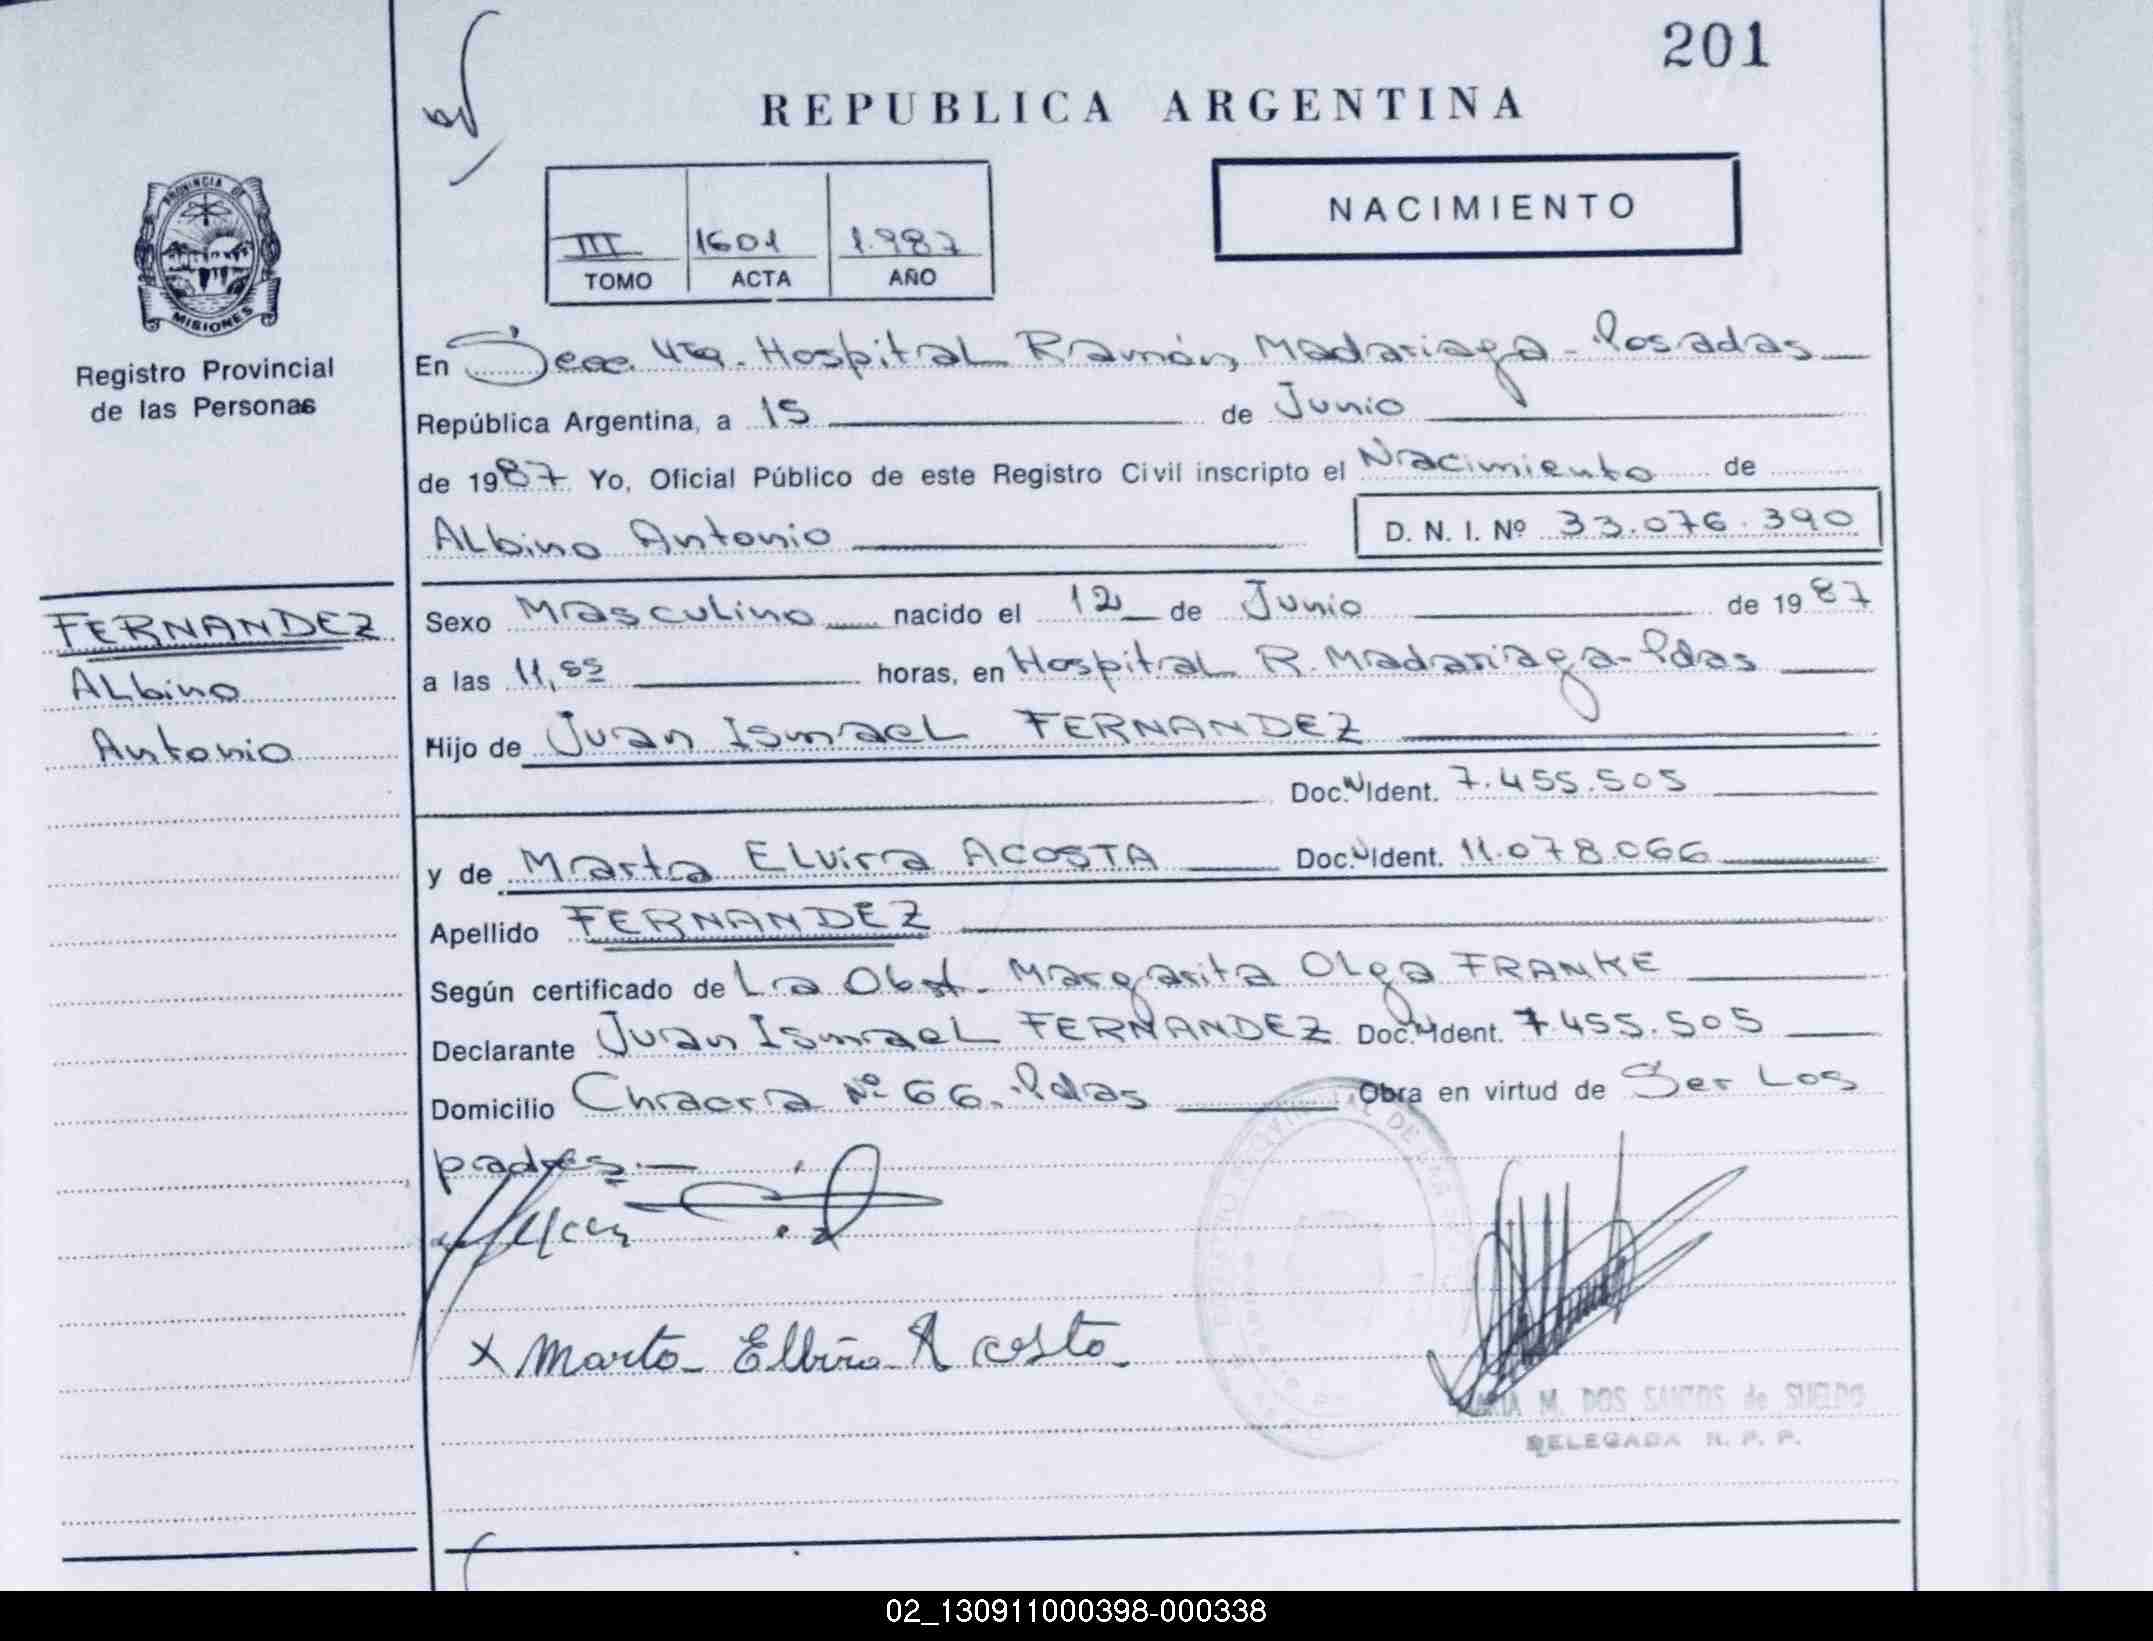 201
REPUBLICA ARGENTINA
PROVINCIA DE
MISIONES
Registro Provincial
de las Personas
III 1601 1.987
TOMO ACTA AÑO
NACIMIENTO
En Secc. 4ta. Hospital Ramón Madariaga - Posadas
República Argentina, a 15 de Junio
de 1987 Yo, Oficial Público de este Registro Civil inscripto el Nacimiento de
Albino Antonio D. N. I. Nº 33.076.390
FERNANDEZ
Albino
Antonio
Sexo Masculino nacido el 12 de Junio de 1987
a las 11,55 horas, en Hospital R. Madariaga - Pdas
Hijo de Juan Ismael FERNANDEZ
Doc. N Ident. 7.455.505
y de Marta Elvira ACOSTA Doc. N Ident. 11.078.066
Apellido FERNANDEZ
Según certificado de La Obst. Margarita Olga FRANKE
Declarante Juan Ismael FERNANDEZ Doc. N Ident. 7.455.505
Domicilio Chacra Nº 66. Pdas Obra en virtud de Ser Los
padres.-
x Marta Elbira Acosta
MARIA M. DOS SANTOS de SUELDO
DELEGADA R. P. P.
02_130911000398-000338